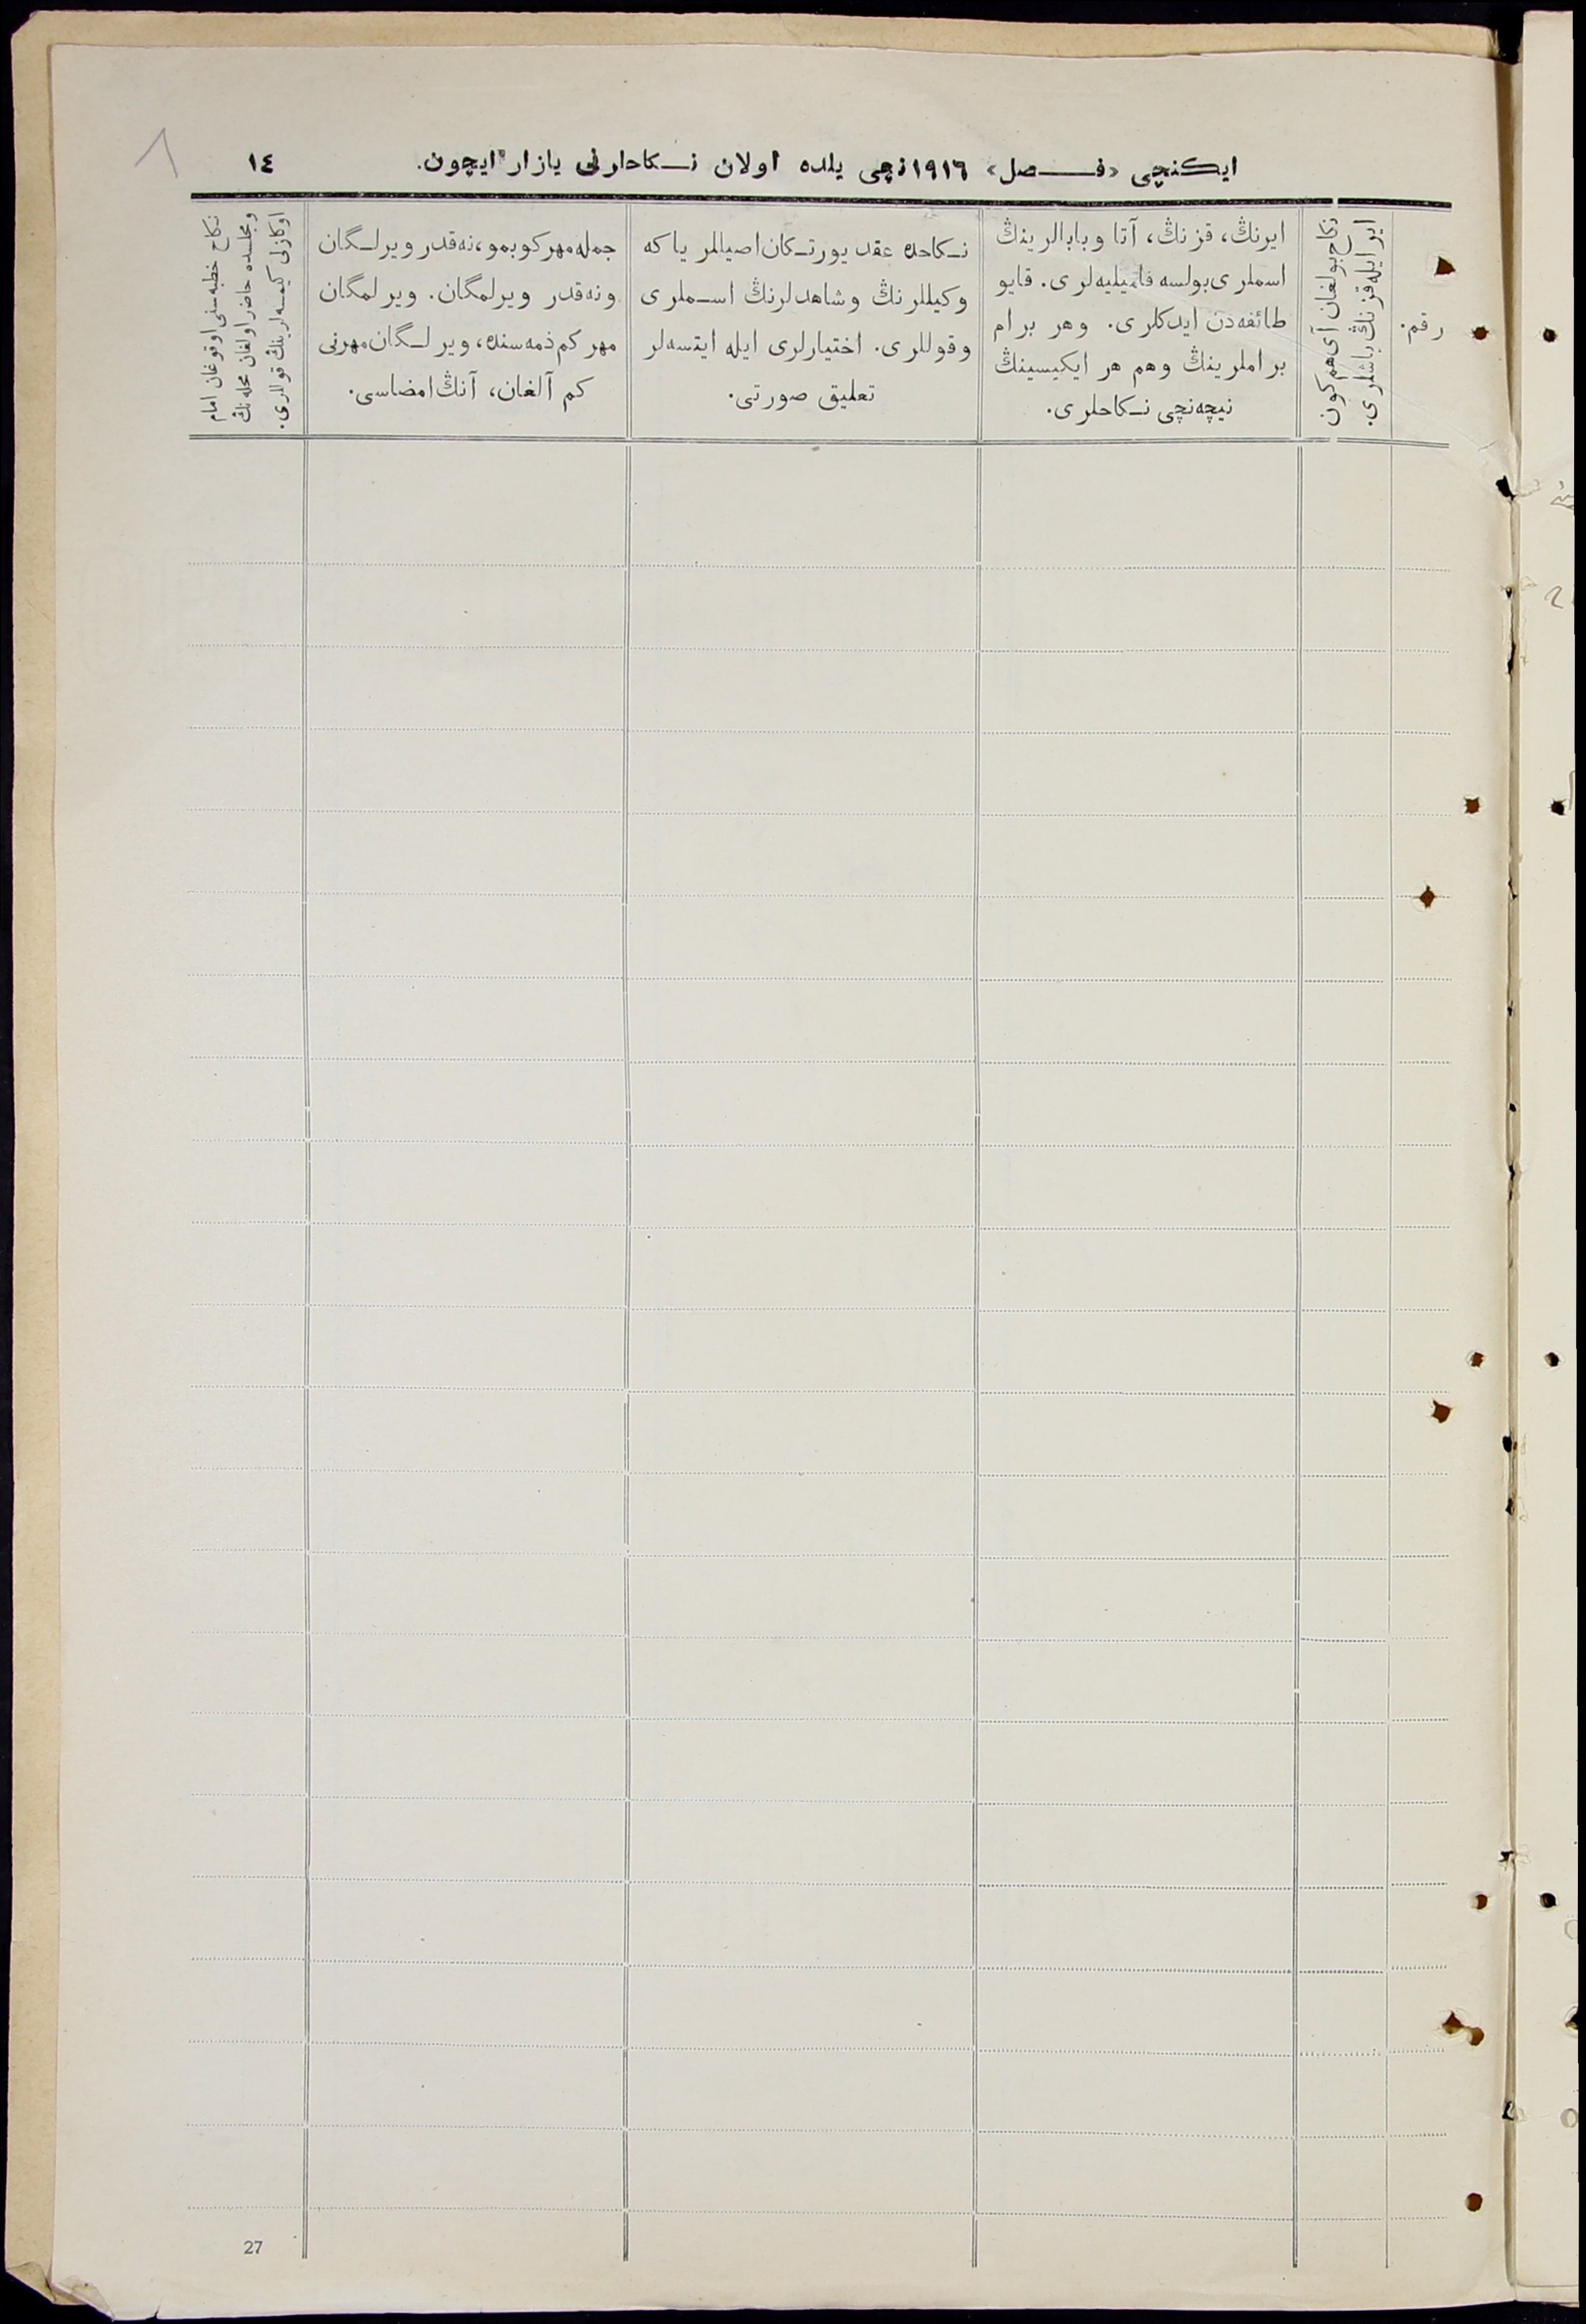 ایکنچی «فصل» ١٩١٦نچی یلده اولان نکاحلرنی یازار ایچون.
١٤
رقم.
نکاح بولغان آی هم کون
ایر ایله قزنڭ باشلری.
ایرنڭ، قزنڭ، آتا وبابالرینڭ
اسملری بولسه فامیلیه‌لری. قایو
طائفه‌دن ایدکلری. وهر برام
براملرینڭ وهم هر ایکیسینڭ
نیچه‌نچی نکاحلری.
نکاحده عقد یورتکان اصیاللر یا که
وکیللرنڭ وشاهدلرنڭ اسملری
وقوللری. اختیارلری ایله ایتسه‌لر
تعلیق صورتی.
جمله مهر کوبمو، نه‌قدر ویرلگان
ونه‌قدر ویرلمگان. ویرلمگان
مهر کم ذمه‌سنده، ویرلگان مهرنی
کم آلغان، آنڭ امضاسی.
نکاح خطبه‌سنی اوقوغان امام
ومجلسده حاضر اولغان محله‌نڭ
اوکازلی کیمسه‌لرینڭ قوللری.
27